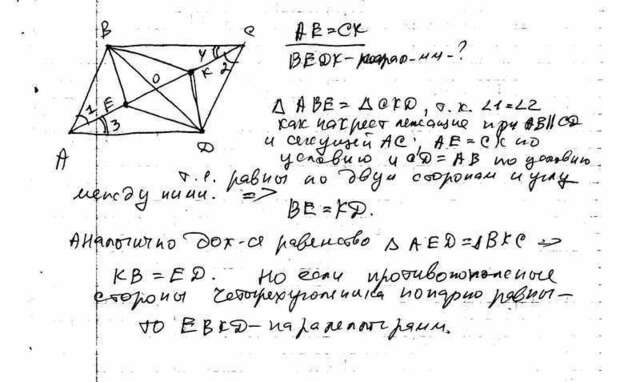 B C
AE=CK
BEDK-паралл-мм-?
4 K 2
O
E
1
3
A D
Δ ABE = Δ CKD, т.к. ∠1=∠2
как накрест лежащие при AB||CD
и секущей AC; AE=CK по
условию и CD=AB по условию
т.е. равны по двум сторонам и углу
между ними. =>
BE=KD.
Аналогично док-ся равенство Δ AED=ΔBKC =>
KB=ED. Но если противоположные
стороны четырехугольника попарно равны-
то EBKD-паралелограмм.